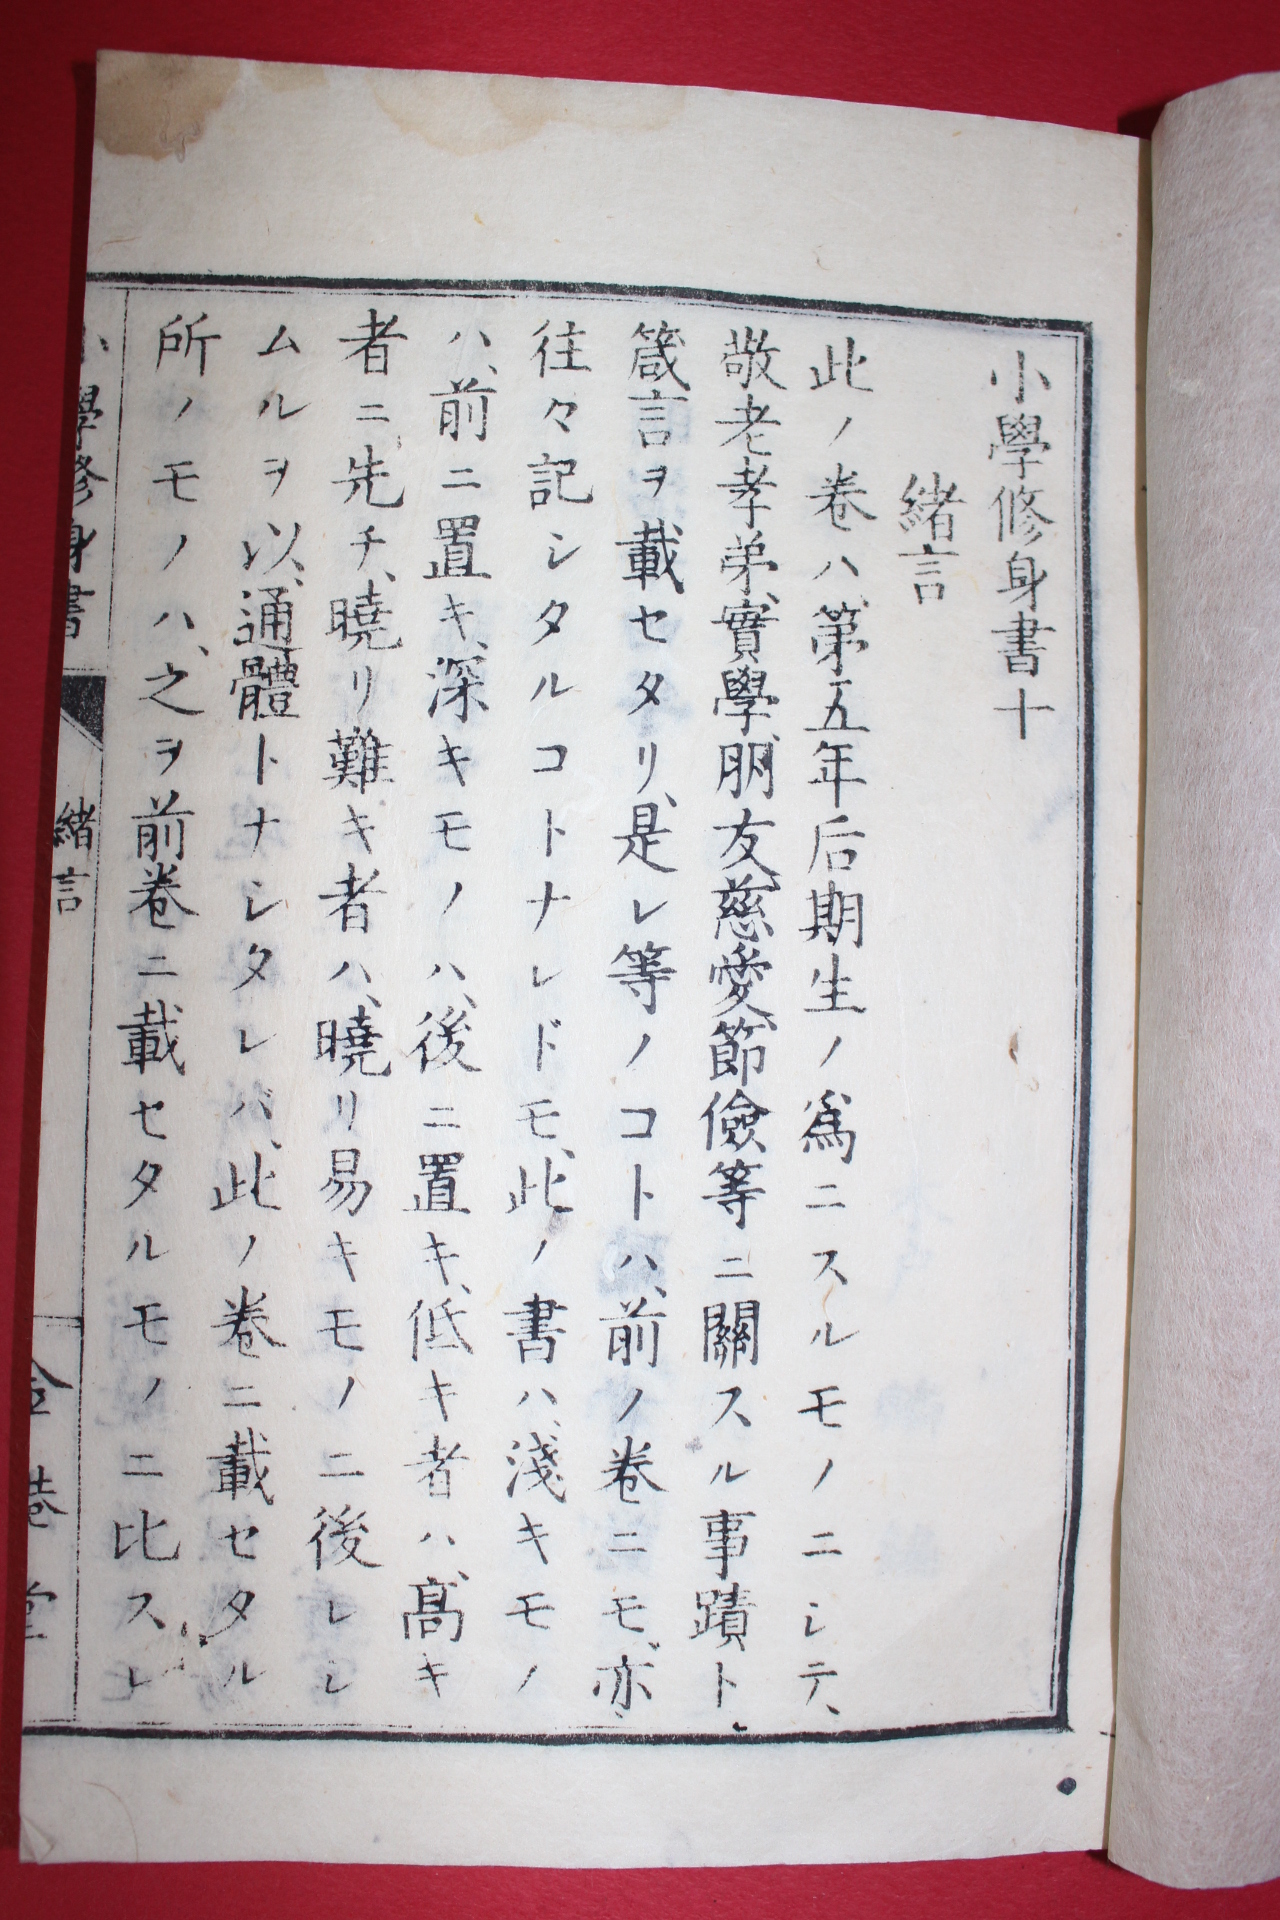 小學修身書十
緒言
此ノ卷ハ、第五年后期生ノ爲ニスルモノニシテ、
敬老孝弟、實學、朋友、慈愛、節儉等ニ關スル事蹟ト、
箴言ヲ載セタリ、是レ等ノコトハ、前ノ卷ニモ、亦、
往々記シタルコトナレドモ、此ノ書ハ、淺キモノ
ハ、前ニ置キ、深キモノハ、後ニ置キ、低キ者ハ、高キ
者ニ先チ、曉リ難キ者ハ、曉リ易キモノニ後レシ
ムルヲ以、通體トナシタレバ、此ノ卷ニ載セタル
所ノモノハ、之ヲ前卷ニ載セタルモノニ比スレ
小學修身書
緒言
金港堂